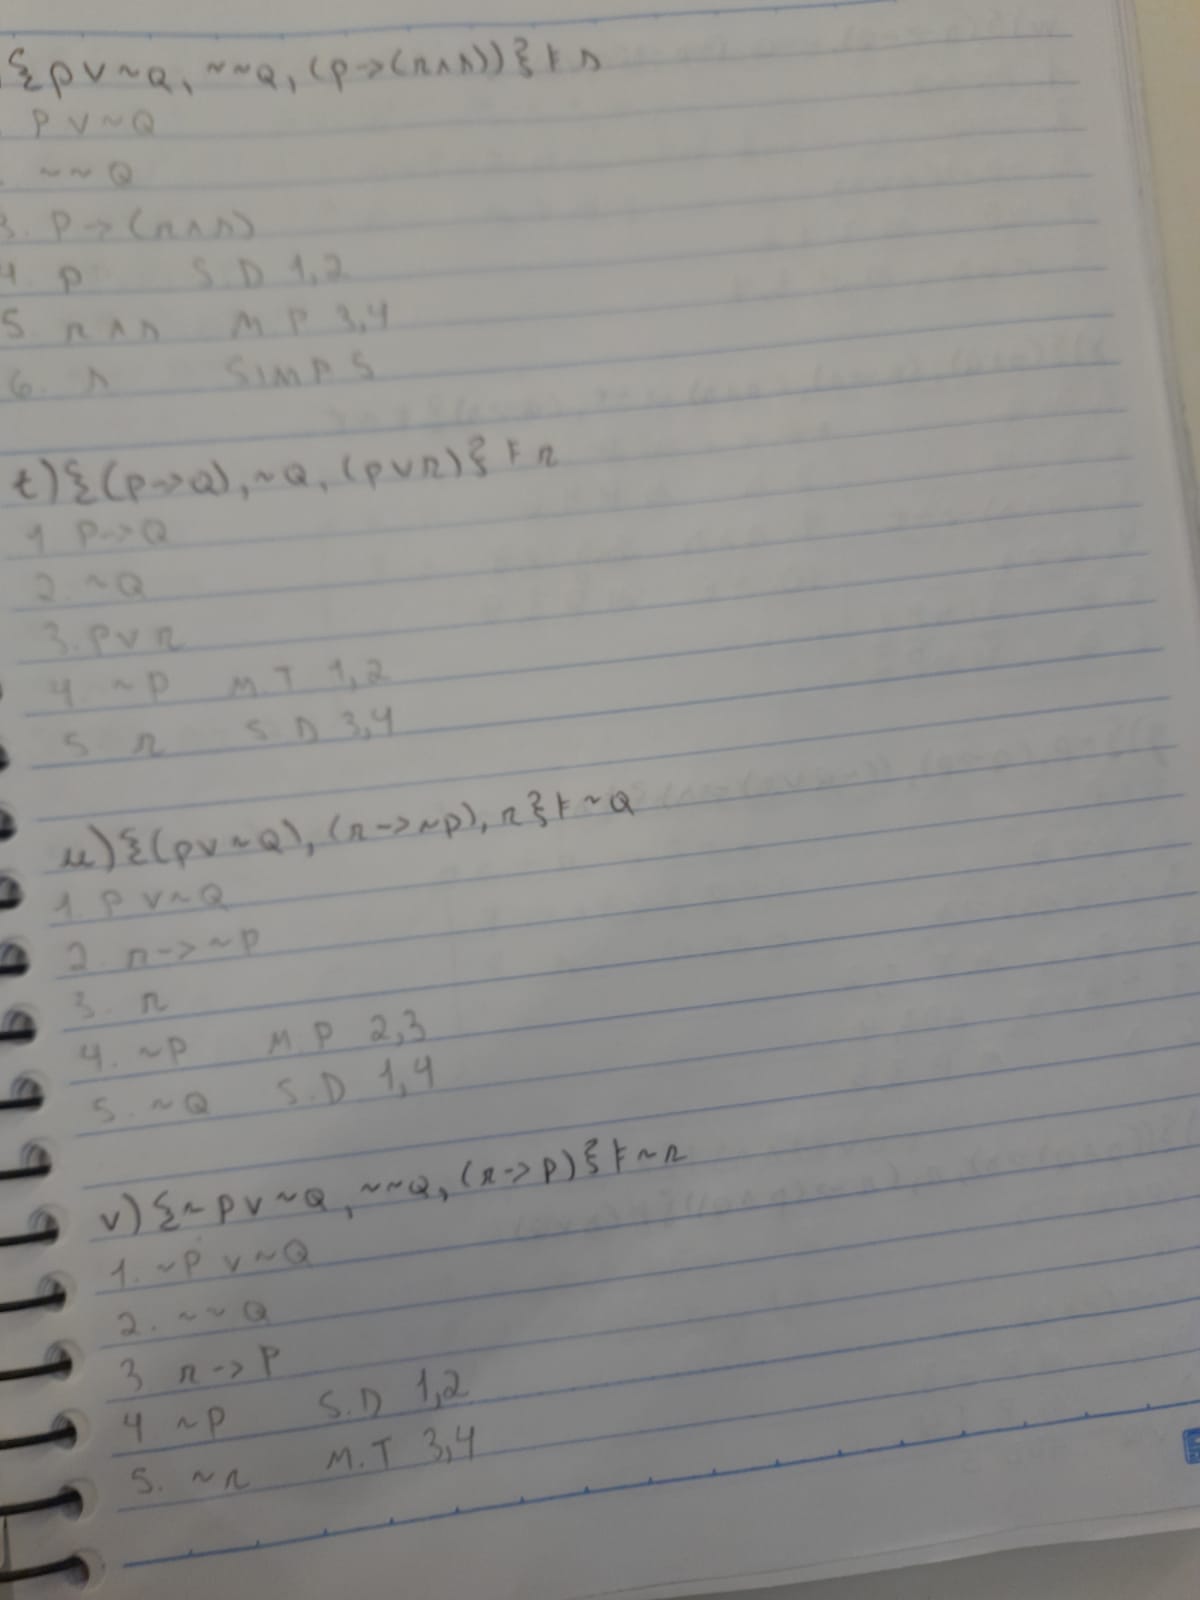 {p v ~Q, ~~Q, (p->(r∧s))} ⊦ s
P v ~Q
~~Q
3. P->(r∧s)
4. p S.D 1,2
5. r∧s M P 3,4
6. s SIMP 5
t) {(p->Q), ~Q, (p v r)} ⊦ r
1 P->Q
2. ~Q
3. p v r
4. ~p M.T 1,2
5 r S D 3,4
u) {(p v ~Q), (r->~p), r} ⊦ ~Q
1. P v ~Q
2. r->~p
3. r
4. ~p M.P 2,3
5. ~Q S.D 1,4
v) {~p v ~Q, ~~Q, (r->p)} ⊦ ~r
1. ~P v ~Q
2. ~~Q
3 r->P
4 ~p S.D 1,2
5. ~r M.T 3,4